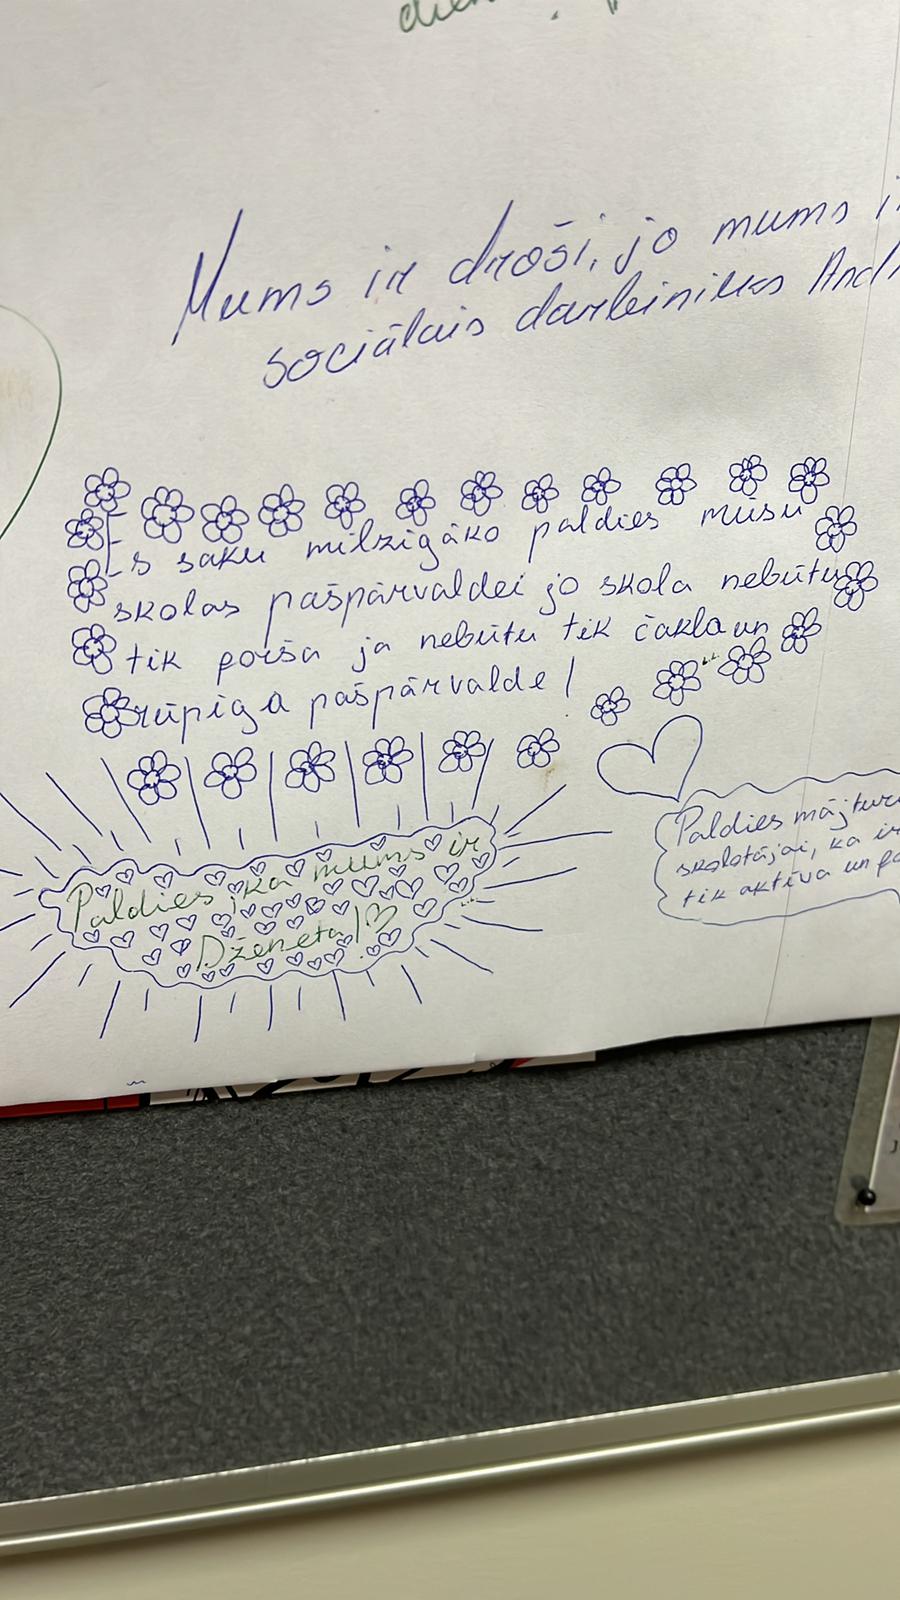 Mums ir droši, jo mums
sociālais darbinieks
Es saku milzigāko paldies mūsu
skolas pašpārvaldei jo skola nebūtu
tik poiša ja nebūtu tik čakla un
rūpiga pašpārvalde!
Paldies, ka mums ir
Dženeta!
Paldies mājtur
skolotājai, ka ir
tik aktīva un